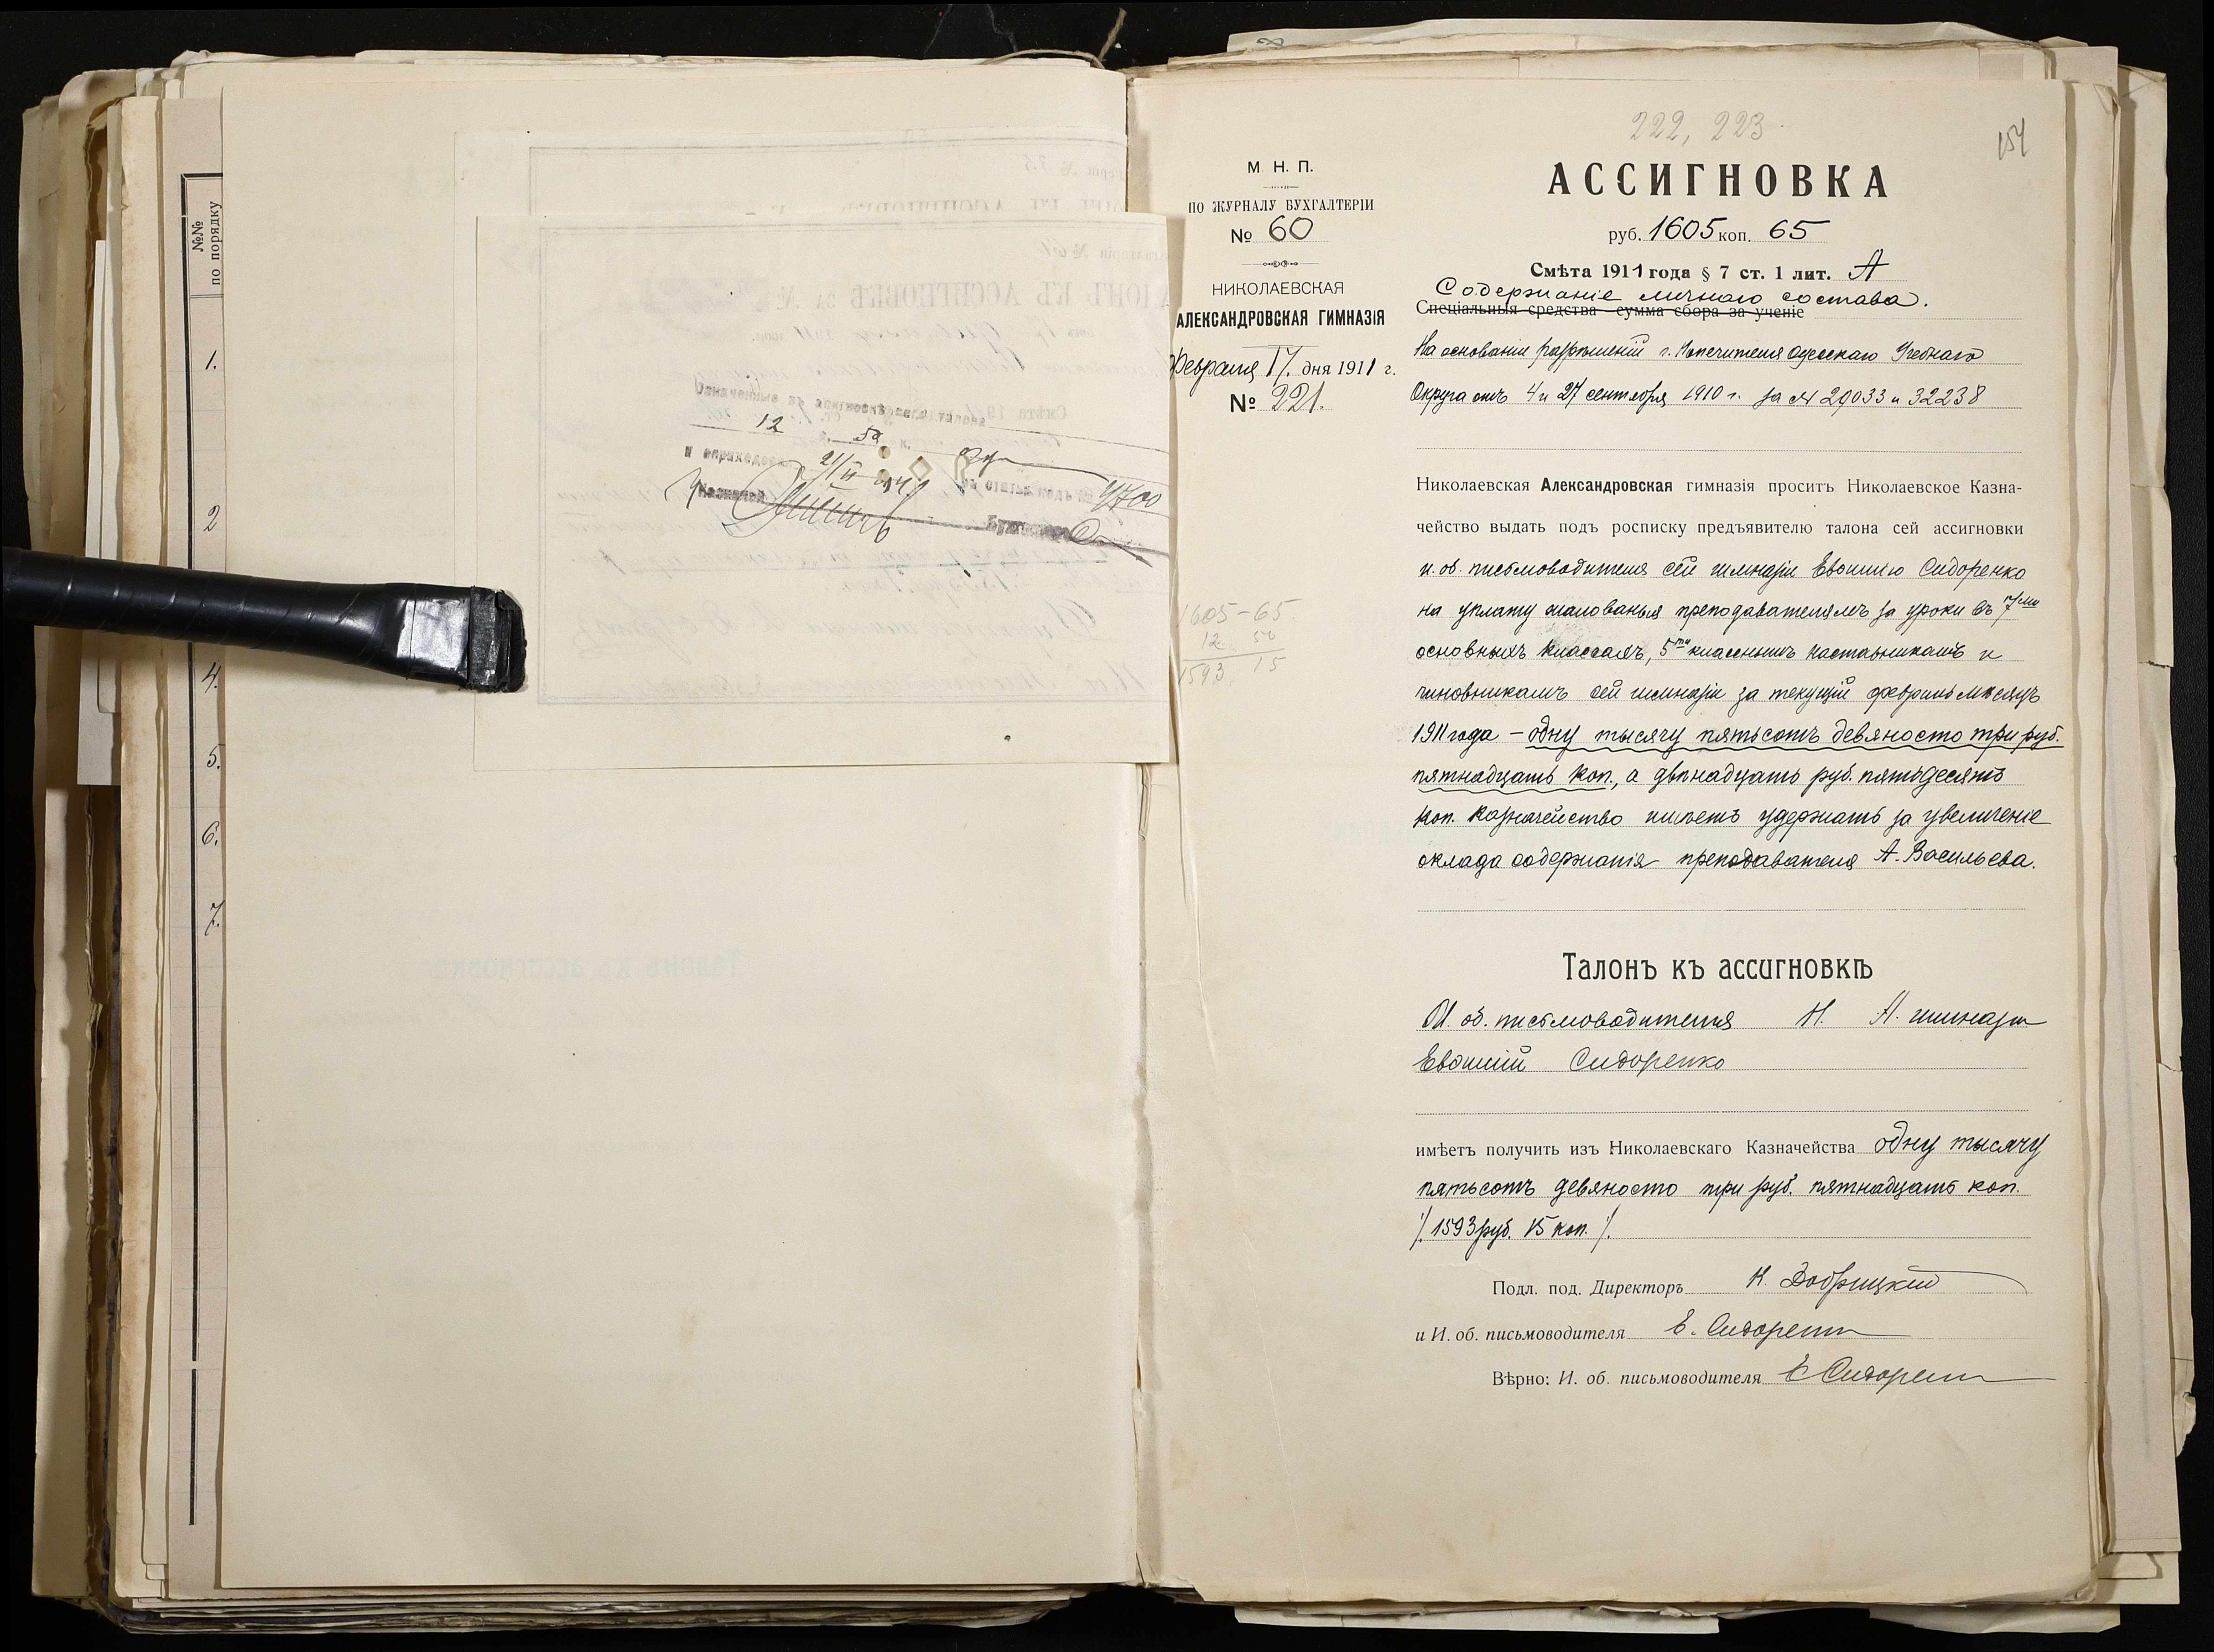 №№
по порядку
1.
2
4.
5.
6.
7.
Означенные въ ассигновкѣ сего талона
12 р. 50 к.
и оприходов. 21/II 1911
въ статью подъ № 4700
Казначей
Бухгалтеръ
222, 223
154
М. Н. П.
ПО ЖУРНАЛУ БУХГАЛТЕРІИ
№ 60
НИКОЛАЕВСКАЯ
АЛЕКСАНДРОВСКАЯ ГИМНАЗІЯ
Февраля 17. дня 1911 г.
№ 221.
1605-65
12 50
1593 15
АССИГНОВКА
руб. 1605 коп. 65
Смѣта 1911 года § 7 ст. 1 лит. А
Содержаніе личнаго состава.
Спеціальныя средства сумма сбора за ученіе
На основаніи разрѣшеній г. Попечителя Одесскаго Учебнаго
Округа отъ 4 и 27 сентября 1910 г. за № 29033 и 32238
Николаевская Александровская гимназія проситъ Николаевское Казна-
чейство выдать подъ росписку предъявителю талона сей ассигновки
и. об. письмоводителя сей гимназіи Сидоренко
на уплату жалованья преподавателямъ за уроки въ 7ми
основныхъ классахъ, 5ти класснымъ наставникамъ и
чиновникамъ сей гимназіи за текущій февраль мѣсяцъ
1911 года – одну тысячу пятьсотъ девяносто три руб.
пятнадцать коп., а двѣнадцать руб. пятьдесятъ
коп. Казначейство имѣетъ удержать за увеличеніе
оклада содержанія преподавателя А. Васильева.
Талонъ къ ассигновкѣ
И. об. письмоводителя Н. А. гимназіи
Сидоренко
имѣетъ получить изъ Николаевскаго Казначейства одну тысячу
пятьсотъ девяносто три руб. пятнадцать коп.
/. 1593 руб. 15 коп. /.
Подл. под. Директоръ Н. Добрицкій
и И. об. письмоводителя Е. Сидоренко
Вѣрно: И. об. письмоводителя Е Сидоренко